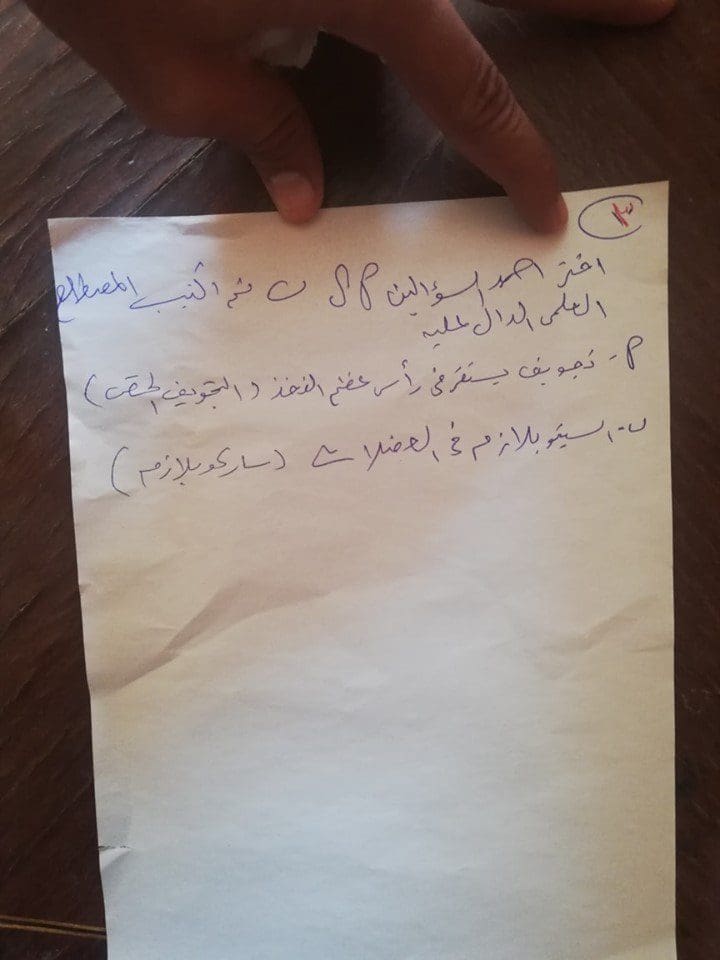 ١٣
اختر احد السؤالين أ أو ب ثم اكتب المصطلح
العلمى الدال عليه
أ- تجويف يستقر فى رأس عظم الفخذ (التجويف الحقى)
ب- السيتوبلازم فى العضلات (ساركوبلازم)